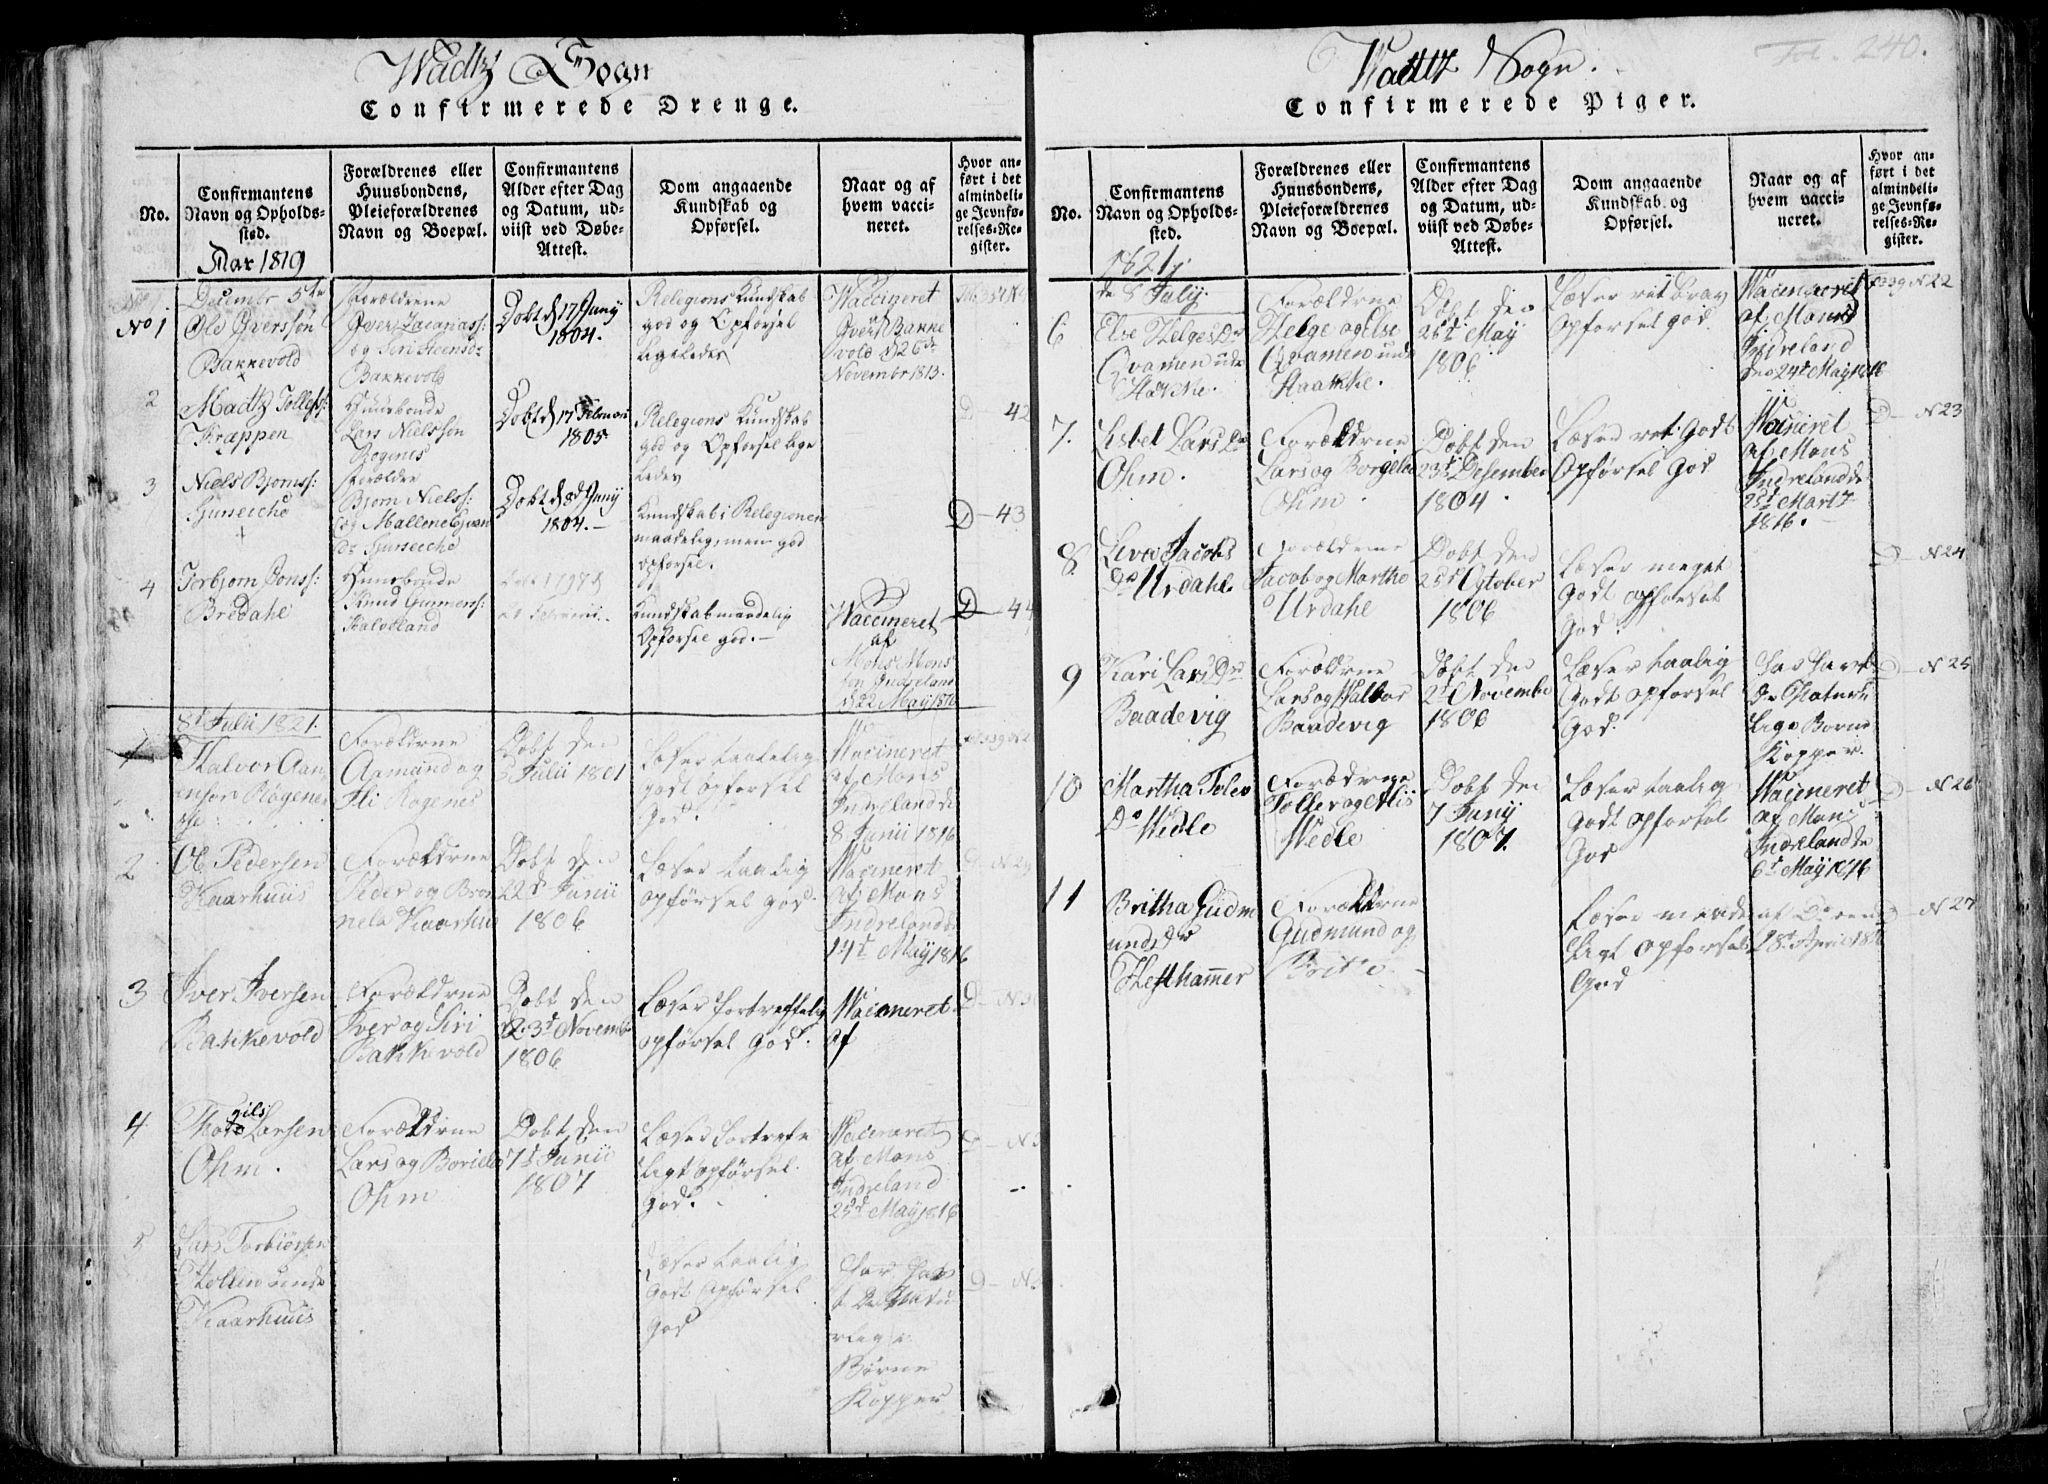 Wadtz Sogn
Confirmerede Drenge.
No.
Confirmantens
Navn og Opholds-
sted.
Forældrenes eller
Huusbondens,
Pleieforældrenes
Navn og Boepæl.
Confirmantens
Alder efter Dag
og Datum, ud-
viist ved Døbe-
Attest.
Dom angaaende
Kundskab og
Opførsel.
Naar og af
hvem vacci-
neret.
Hvor an-
ført i det
almindeli-
ge Jevnfø-
relses-Re-
gister.
Aar 1819
No 1
Decembr 5te
Ole Iverssøn
Bakkevold
Forældrene
Iver Zacariass:
og Siri Steensdr
Bakkevold
Døbt d 17 Juny
1804.
Religions Kundskab
god og Opførsel
ligeledes
Waccineret
af
Iver Bakke
vold d 26de
Novembr 1813.
2
Madtz Tollefs:
Kræppen
Huusbonde
Lars Nielssøn
Rogenes
Døbt d 17 Februar
1805
Relegions Kundskab
god og Opførsel lige
ledes
D - 42
3
Niels Bjørns:
Forældre
Bjørn Nielss:
og Mallene
Døbt d 8d Juny
1804. -
Kundskab i Relegionen
maadelig, men god
opførsel.
D - 43
4
Torbjørn Jonss:
Bredahl
Huusbonde
Knud Gunners:
Halvland
Kundskab maadelig
Opførsel god. -
Waccineret
af
Mons Mons
søn Indreland
d 22 May 1816
D - 44
8d Julii 1821.
1
Halvor Aan
ensen Røgene
Forældrne
Aamund og
Eli Rogenes
Døbt den
5 Julii 1801
Læser taalelig
godt opførsel
God.
Wacineret
af Mons
Indreland de
8 Junii 1816
2
Ole Pedersen
Kaarhuus
Forældrne
Peder og Bron
nela Kaarhuu
Døbt den
22d Junii
1806
Læser taalig
opførsel God.
Wacineret
af Mons
Indreland d
14t May 1816
D - N 29
3
Iver Iversen
Bakkevold
Forældrne
Iver og Siri
Bakkevold
Døbt den
23d Novemb
1806
Læser fortreffelig
opførsel God.
Wacineret
af
4
Thorgils Larsen
Ohm.
Forældrne
Lars og Borille
Ohm
Døbt den
7d Junii
1807
Læser fortrefe
ligt opførsel
God.
Wacineret
af Mons
Indreland
25d May 1816
5
Lars Torbiørsen
Hollen unde
Kaarhuus
Læser taalig
Godt opførsel
God
har hav
t de natu
rlige
Børne
Kopper
Wadtz Sogn.
Fol. 240.
Confirmerede Piger.
No.
Confirmantens
Navn og Opholds-
sted.
Forældrenes eller
Huusbondens,
Pleieforældrenes
Navn og Boepæl.
Confirmantens
Alder efter Dag
og Datum, ud-
viist ved Døbe-
Attest.
Dom angaaende
Kundskab og
Opførsel.
Naar og af
hvem vacci-
neret.
Hvor an-
ført i det
almindeli-
ge Jevnfø-
relses-Re-
gister.
1821
de 8 July.
6
Else Helges Dr
Qvamen und
Haakke.
Forældrne
Helge og Else
Qvamen und
Haakke.
Døbt den
26d May
1806
Læser ret brav
Opførsel god
Wacineret
af Mons
Indreland
den 24d May 1816
N 22
7.
Lisbet Lars Dr
Ohm.
Forældrne
Lars og Borgela
Ohm
Døbt den
23d Desember
1804
Læser ret Godt
Opførsel God
Wacineret
af Mons
Indreland de
25d Martz
1816.
D - N 23
8.
Siva Jacobs
Dr Urdahl.
Forældrne
Jacob og Martha
Urdahl
Døbt den
25d October
1806
Læser meget
Godt opførsel
God.
D - N 24
9
Kari Lars Dr
Baadevig
Forældrne
Lars og
Baadevig
Døbt den
2d Novemb
1806
Læser taalig
Godt opførsel
God.
har havt
de Natur
lige Børne
Kopper.
D - N 25
10
Martha Tolev
Dr Wedle
Forældrne
Tollev og Elis
Wedle
Døbt den
7 Juny
1807.
Læser taalig
Godt opførsel
God
Wacineret
af Mons
Indreland de
6d May 1816
D - N 26
11
Britha Gudm
unds Dr
Hesthammer
Forældrne
Gudmund og
Brite. -
Læser maade
ligt opførsel
God
af Do den
28d April 181
D - N 27